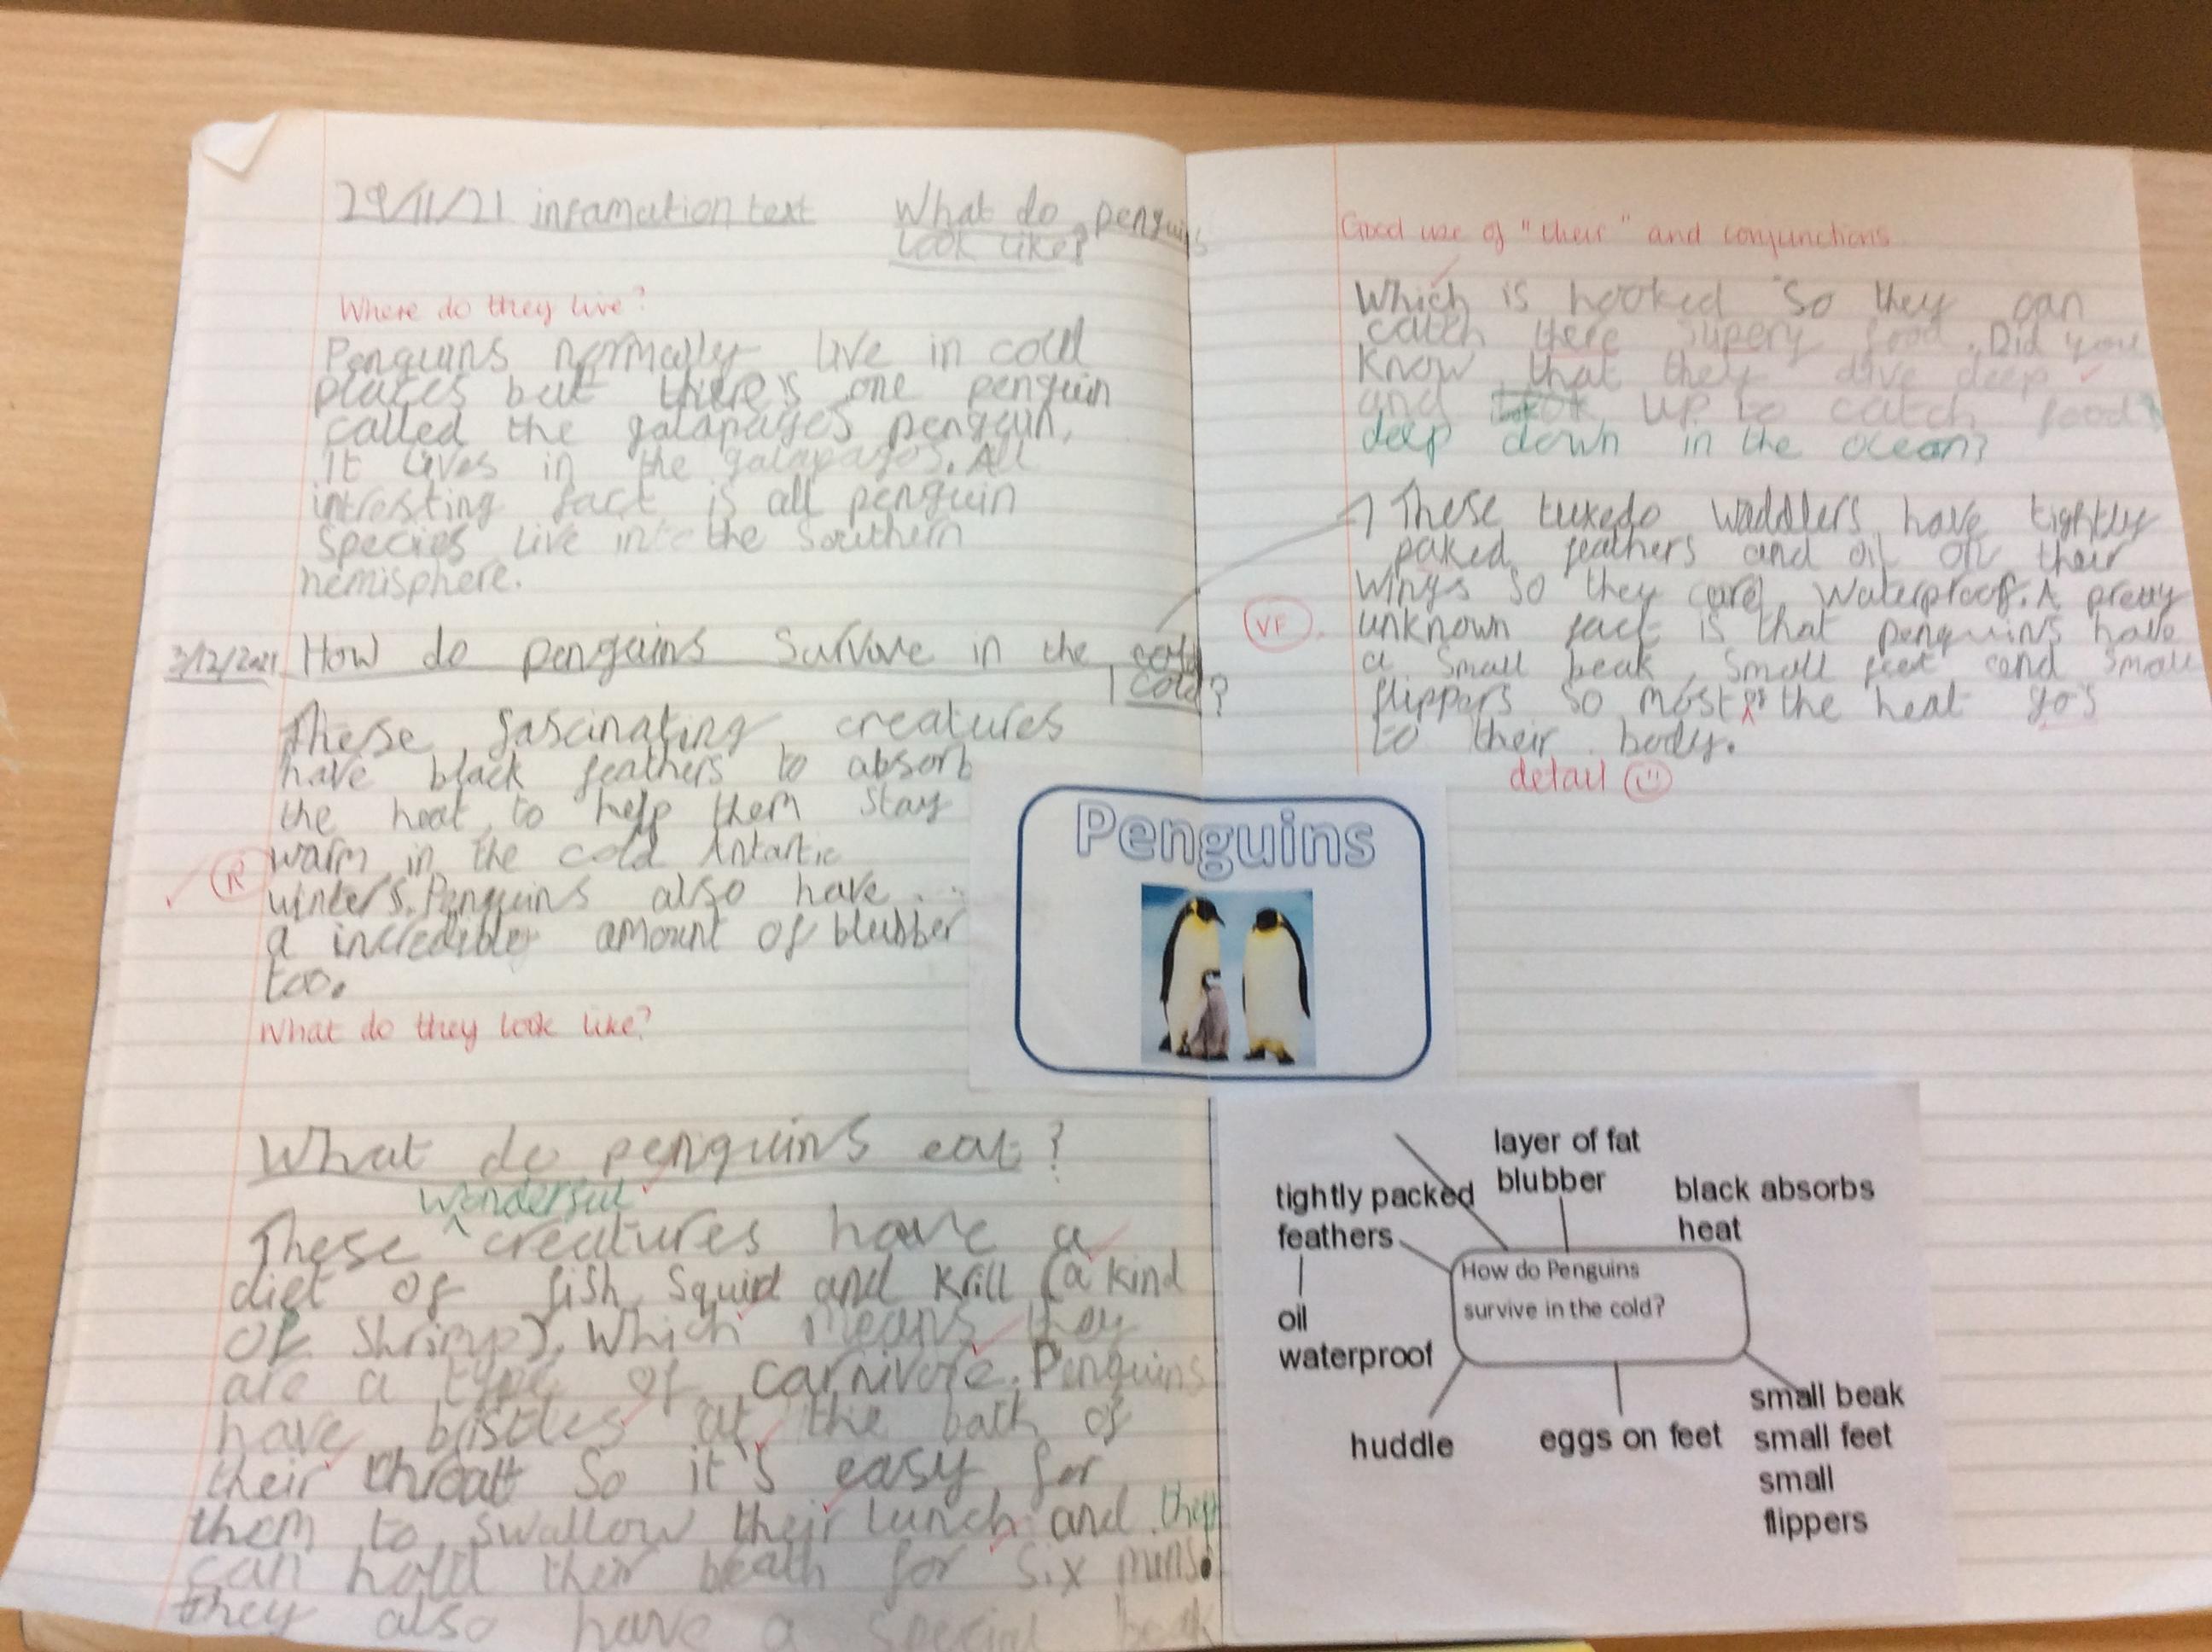 29/11/21 infamation text
What do penguins
look like?
Where do they live?
Penguins normally live in cold
places but there's one penguin
called the galapagos penguin,
It lives in the galapagos. All
intresting fact is all penguin
species live in the southern
hemisphere.
3/12/2021 How do penguins survive in the cold
cold?
These fascinating creatures
have black feathers to absorb
the heat to help them stay
R warm in the cold Antartic
winters. Penguins also have
a incredible amount of blubber
too.
What do they look like?
What do penguins eat?
wonderful
These creatures have a
diet of fish, squid and krill (a kind
of shrimp). Which means they
are a type of carnivore. Penguins
have bristles at the back of
their throat so it's easy for
them to swallow their lunch and they
can hold their breath for six mins.
they also have a special beak
Good use of "their" and conjunctions.
Which is hooked so they can
catch there slipery food. Did you
know that they dive deep
and look up to catch food
deep down in the ocean?
These tuxedo waddlers have tightly
paked feathers and oil on their
wings so they are waterproof. A pretty
VF unknown fact is that penguins have
a small beak, small feet and small
flippers so most of the heat gos
to their body.
detail
Penguins
layer of fat
blubber
tightly packed
feathers
black absorbs
heat
How do Penguins
survive in the cold?
oil
waterproof
huddle
eggs on feet
small beak
small feet
small
flippers